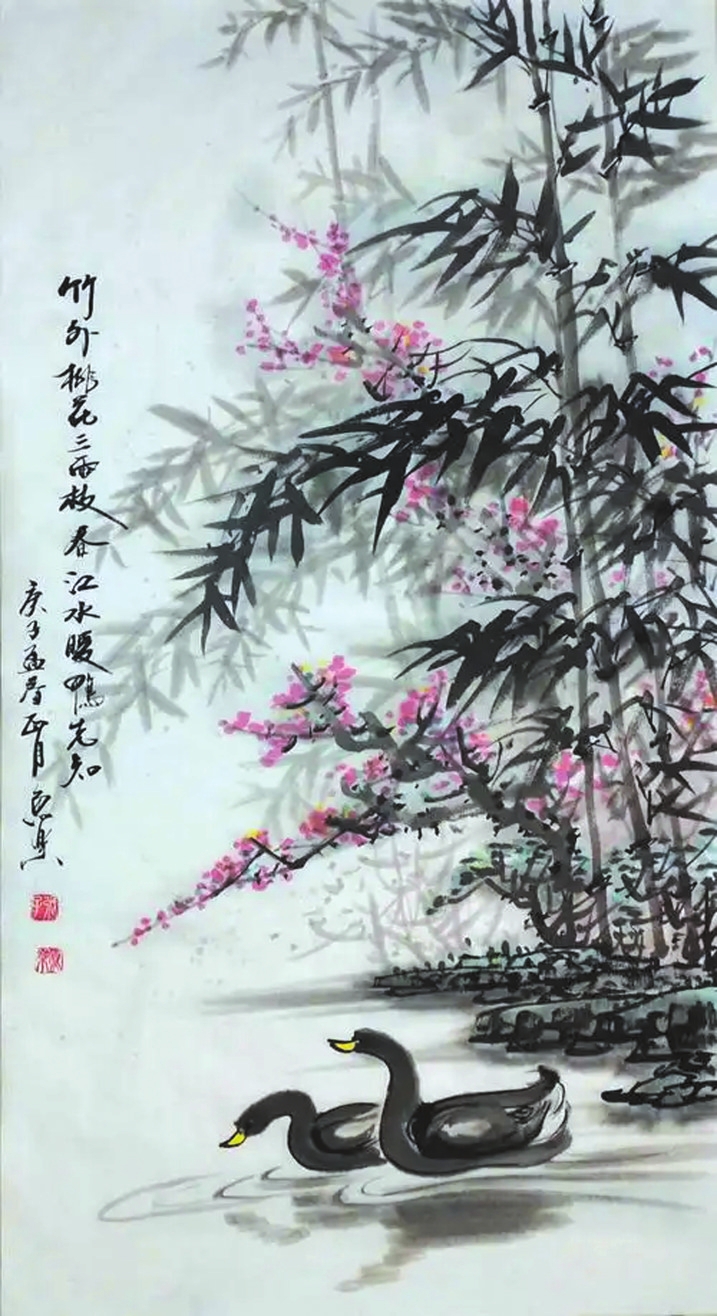 竹外桃花三两枝春江水暖鸭先知
庚子孟春正月